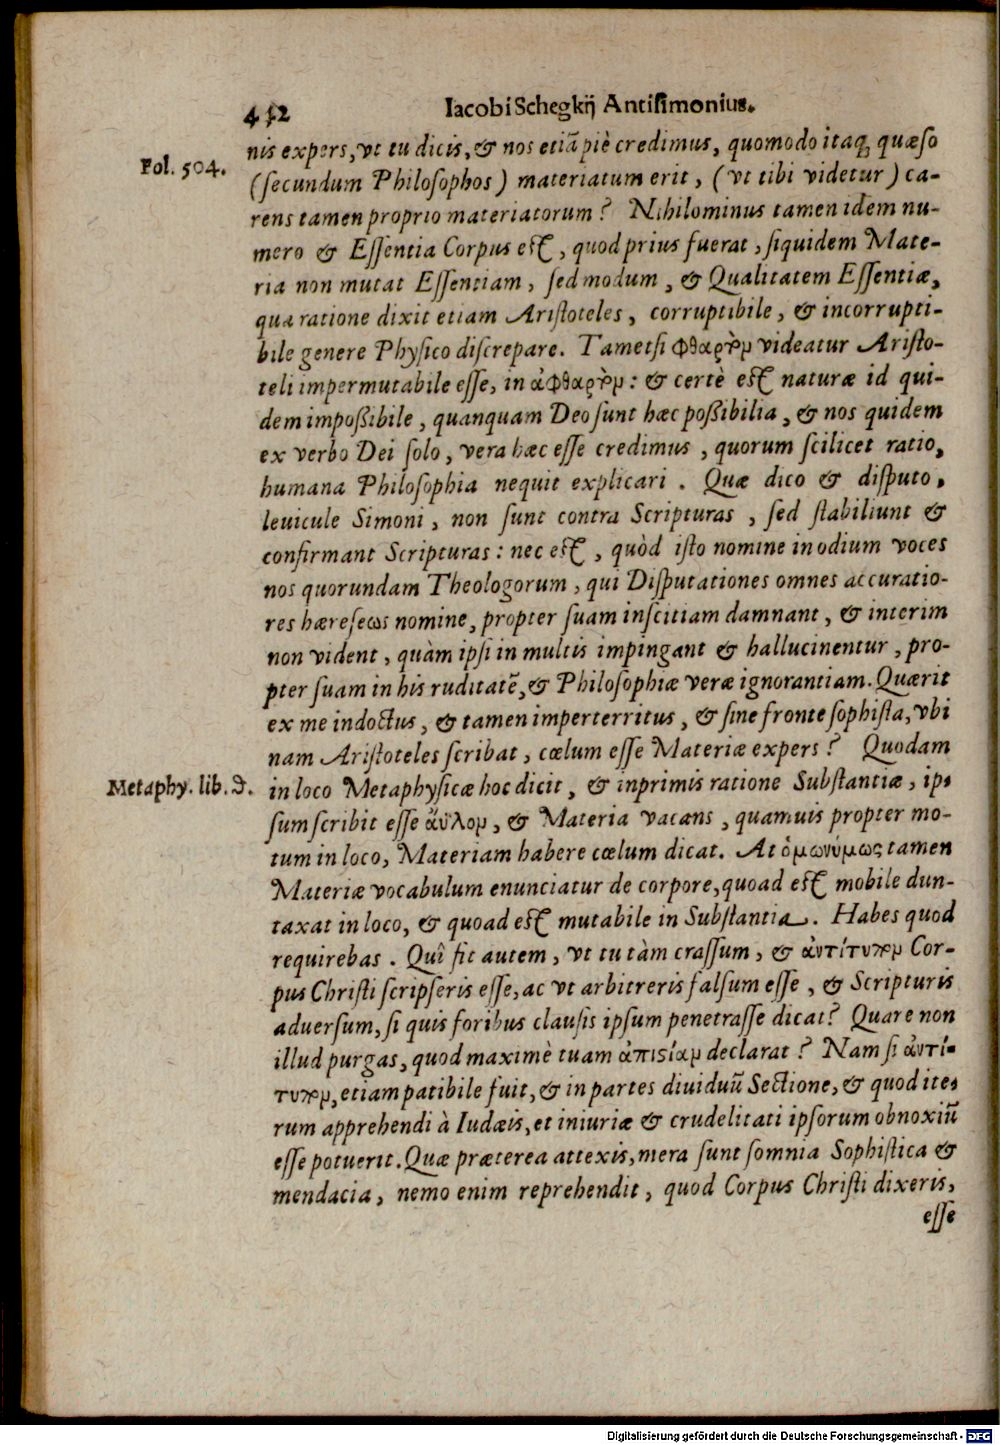 412
Iacobi Schegkij Antisimonius.
nis expers, vt tu dicis, & nos etiā piè credimus, quomodo itaq; quæso
Fol. 504.
(secundum Philosophos) materiatum erit, (vt tibi videtur) ca-
rens tamen proprio materiatorum? Nihilominus tamen idem nu-
mero & Essentia Corpus est, quod prius fuerat, siquidem Mate-
ria non mutat Essentiam, sed modum, & Qualitatem Essentiæ,
qua ratione dixit etiam Aristoteles, corruptibile, & incorrupti-
bile genere Physico discrepare. Tametsi φθαρτὸμ videatur Aristo-
teli impermutabile esse, in ἀφθαρτὸμ: & certè est naturæ id qui-
dem impoßibile, quanquam Deo sunt hæc poßibilia, & nos quidem
ex verbo Dei solo, vera hæc esse credimus, quorum scilicet ratio,
humana Philosophia nequit explicari. Quæ dico & disputo,
leuicule Simoni, non sunt contra Scripturas, sed stabiliunt &
confirmant Scripturas: nec est, quòd isto nomine in odium voces
nos quorundam Theologorum, qui Disputationes omnes accuratio-
res hæreseως nomine, propter suam inscitiam damnant, & interim
non vident, quàm ipsi in multis impingant & hallucinentur, pro-
pter suam in his ruditatē, & Philosophiæ veræ ignorantiam. Quærit
ex me indoctus, & tamen imperterritus, & sine fronte sophista, vbi
nam Aristoteles scribat, cœlum esse Materiæ expers? Quodam
Metaphy. lib. 9.
in loco Metaphysicæ hoc dicit, & inprimis ratione Substantiæ, ip-
sum scribit esse ἄϋλομ, & Materia vacans, quamuis propter mo-
tum in loco, Materiam habere cœlum dicat. At ὁμωνύμως tamen
Materiæ vocabulum enunciatur de corpore, quoad est mobile dun-
taxat in loco, & quoad est mutabile in Substantia. Habes quod
requirebas. Quî fit autem, vt tu tàm crassum, & ἀντίτυπομ Cor-
pus Christi scripseris esse, ac vt arbitreris falsum esse, & Scripturis
aduersum, si quis foribus clausis ipsum penetrasse dicat? Quare non
illud purgas, quod maximè tuam ἀπιστίαμ declarat? Nam si ἀντί-
τυπομ, etiam patibile fuit, & in partes diuiduū Sectione, & quod ite-
rum apprehendi à Iudæis, et iniuriæ & crudelitati ipsorum obnoxiū
esse potuerit. Quæ præterea attexis, mera sunt somnia Sophistica &
mendacia, nemo enim reprehendit, quod Corpus Christi dixeris,
esse
Digitalisierung gefördert durch die Deutsche Forschungsgemeinschaft - DFG